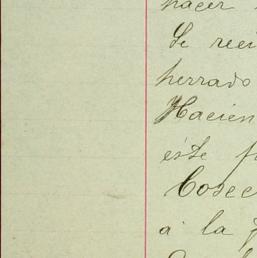 hacer
Se reci
herrado
Hacien
este f
Cosec
á la f